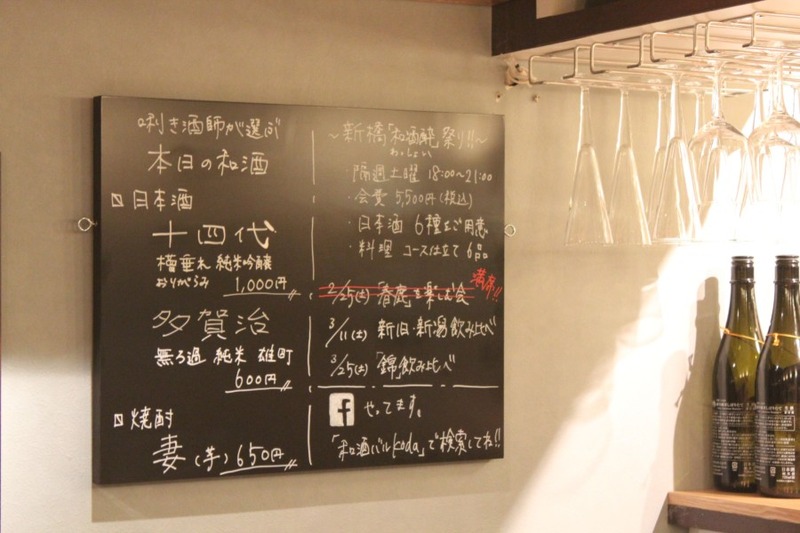 唎き酒師が選ぶ
本日の和酒
日本酒
十四代
槽垂れ 純米吟醸
おりがらみ 1,000円
多賀治
無ろ過 純米 雄町
600円
焼酎
妻(芋) 650円
～新橋「和酒酔祭り!!～
わっしょい
隔週土曜 18:00～21:00
・会費 5,500円(税込)
・日本酒 6種立ご用意
・料理 コース仕立て 6品
2/25(土)「春鹿を楽しむ会
満席!!
3/11(土) 新旧・新潟飲み比べ
3/25(土)「錦」飲み比べ
f やってます。
「和酒バルKoda」で検索してね!!